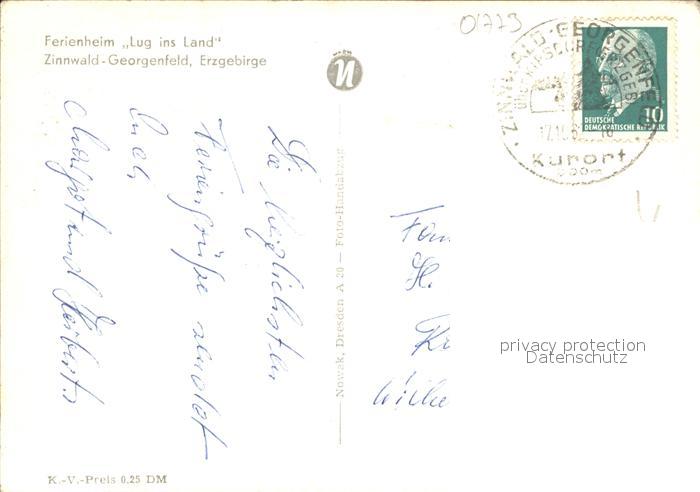 01773
Ferienheim „Lug ins Land"
Zinnwald-Georgenfeld, Erzgebirge
ZINNWALD-GEORGENFELD
ÜB. KIPSDORF ERZGEB.
Kurort
10
DEUTSCHE
DEMOKRATISCHE REPUBLIK
Die herzlichsten
Feriengrüße sendet
Euch
Margot und Herbert.
Nowak, Dresden A 20 — Foto-Handabzug
Fam
H.
privacy protection
Datenschutz
K.-V.-Preis 0,25 DM